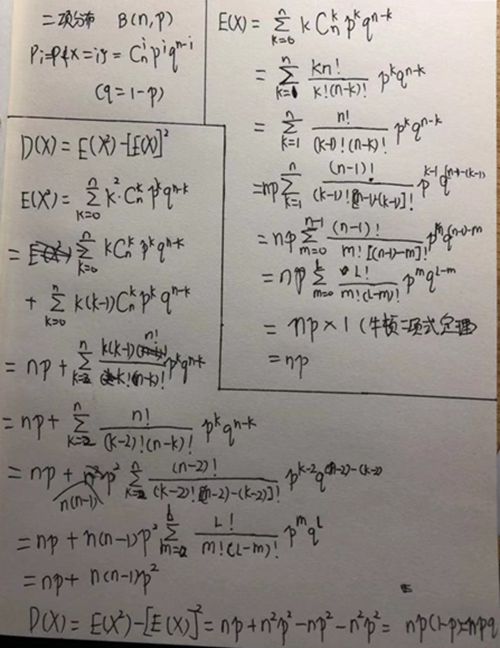 二项分布 B(n,p)
Pi=P{x=i}=C_n^i p^i q^{n-i}
(q=1-p)
E(X)=∑_{k=0}^{n} k C_n^k p^k q^{n-k}
=∑_{k=1}^{n} \frac{kn!}{k!(n-k)!} p^k q^{n-k}
=∑_{k=1}^{n} \frac{n!}{(k-1)!(n-k)!} p^k q^{n-k}
=np∑_{k=1}^{n} \frac{(n-1)!}{(k-1)![(n-1)-(k-1)]!} p^{k-1} q^{(n-1)-(k-1)}
=np∑_{m=0}^{n-1} \frac{(n-1)!}{m![(n-1)-m]!} p^m q^{(n-1)-m}
=np∑_{m=0}^{L} \frac{L!}{m!(L-m)!} p^m q^{L-m}
=np×1 (牛顿二项式定理)
=np
D(X)=E(X²)-[E(X)]²
E(X²)=∑_{k=0}^{n} k²·C_n^k p^k q^{n-k}
=∑_{k=0}^{n} kC_n^k p^k q^{n-k}
+∑_{k=0}^{n} k(k-1)C_n^k p^k q^{n-k}
=np+∑_{k=2}^{n} \frac{k(k-1)n!}{k!(n-k)!} p^k q^{n-k}
=np+∑_{k=2}^{n} \frac{n!}{(k-2)!(n-k)!} p^k q^{n-k}
=np+n(n-1)p²∑_{k=2}^{n} \frac{(n-2)!}{(k-2)![(n-2)-(k-2)]!} p^{k-2} q^{(n-2)-(k-2)}
=np+n(n-1)p²∑_{m=0}^{L} \frac{L!}{m!(L-m)!} p^m q^L
=np+n(n-1)p²
D(X)=E(X²)-[E(X)]²=np+n²p²-np²-n²p²=np(1-p)=npq